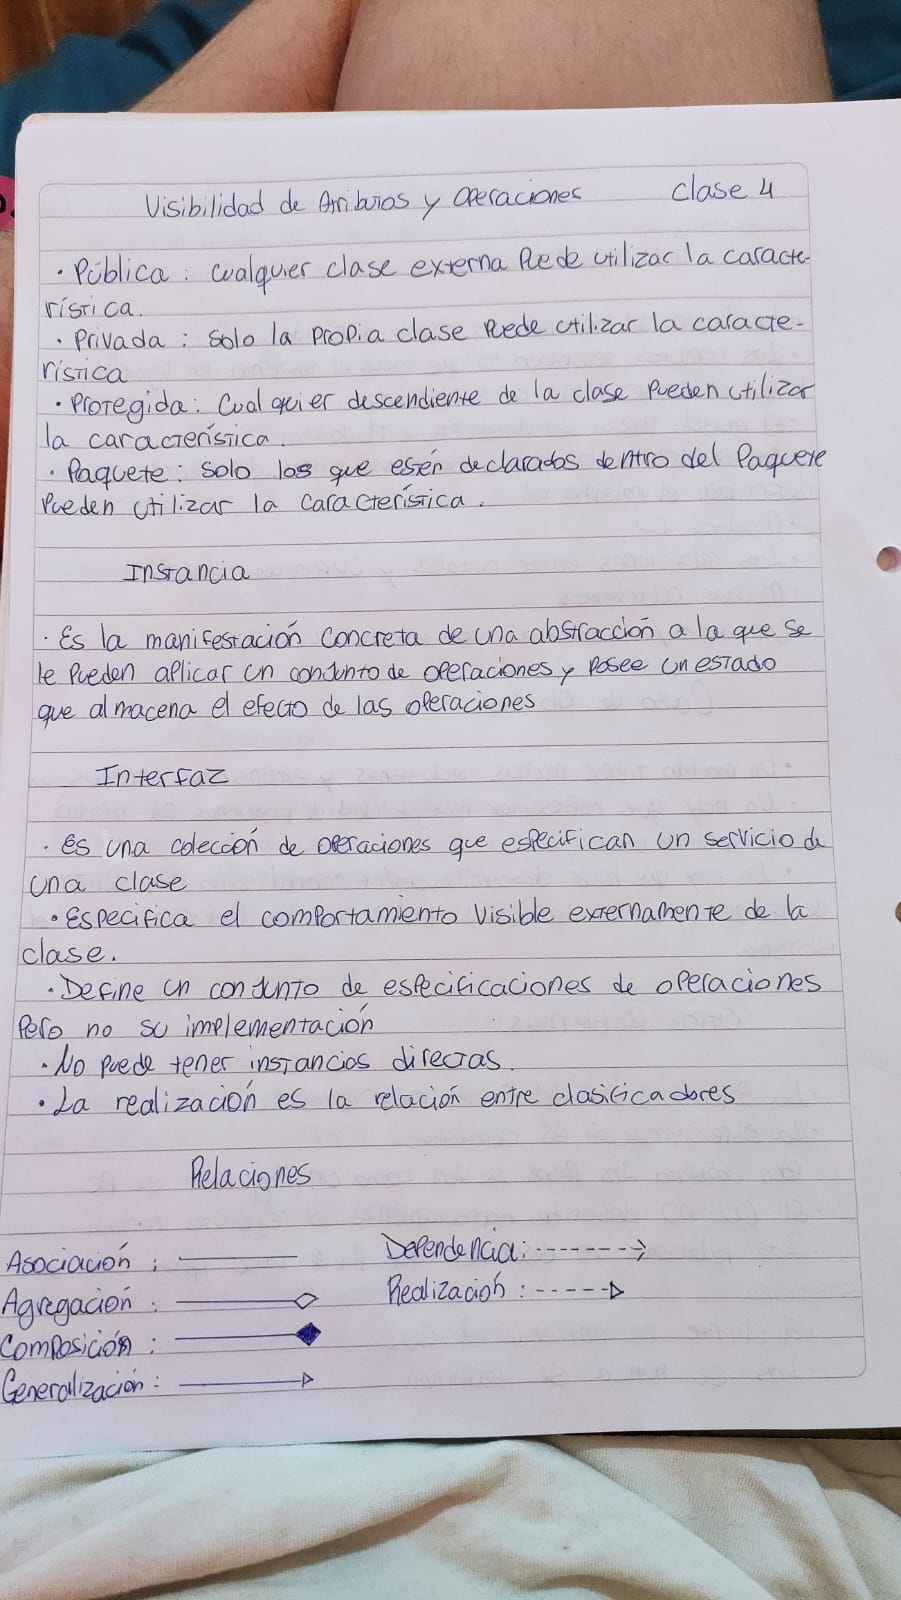 Visibilidad de Atributos y Operaciones Clase 4
· Pública: cualquier clase externa Puede utilizar la caracte-
rística.
· Privada: solo la propia clase puede utilizar la caracte-
rística
· Protegida: Cualquier descendiente de la clase pueden utilizar
la característica.
· Paquete: solo los que estén declarados dentro del Paquete
Pueden utilizar la característica.
Instancia
· Es la manifestación concreta de una abstracción a la que se
le pueden aplicar un conjunto de operaciones y posee un estado
que almacena el efecto de las operaciones
Interfaz
· es una colección de operaciones que especifican un servicio de
una clase
· Especifica el comportamiento visible externamente de la
clase.
· Define un conjunto de especificaciones de operaciones
pero no su implementación
· No puede tener instancias directas.
· La realización es la relación entre clasificadores
Relaciones
Asociación:
Dependencia:
Agregación:
Realización:
Composición:
Generalización: